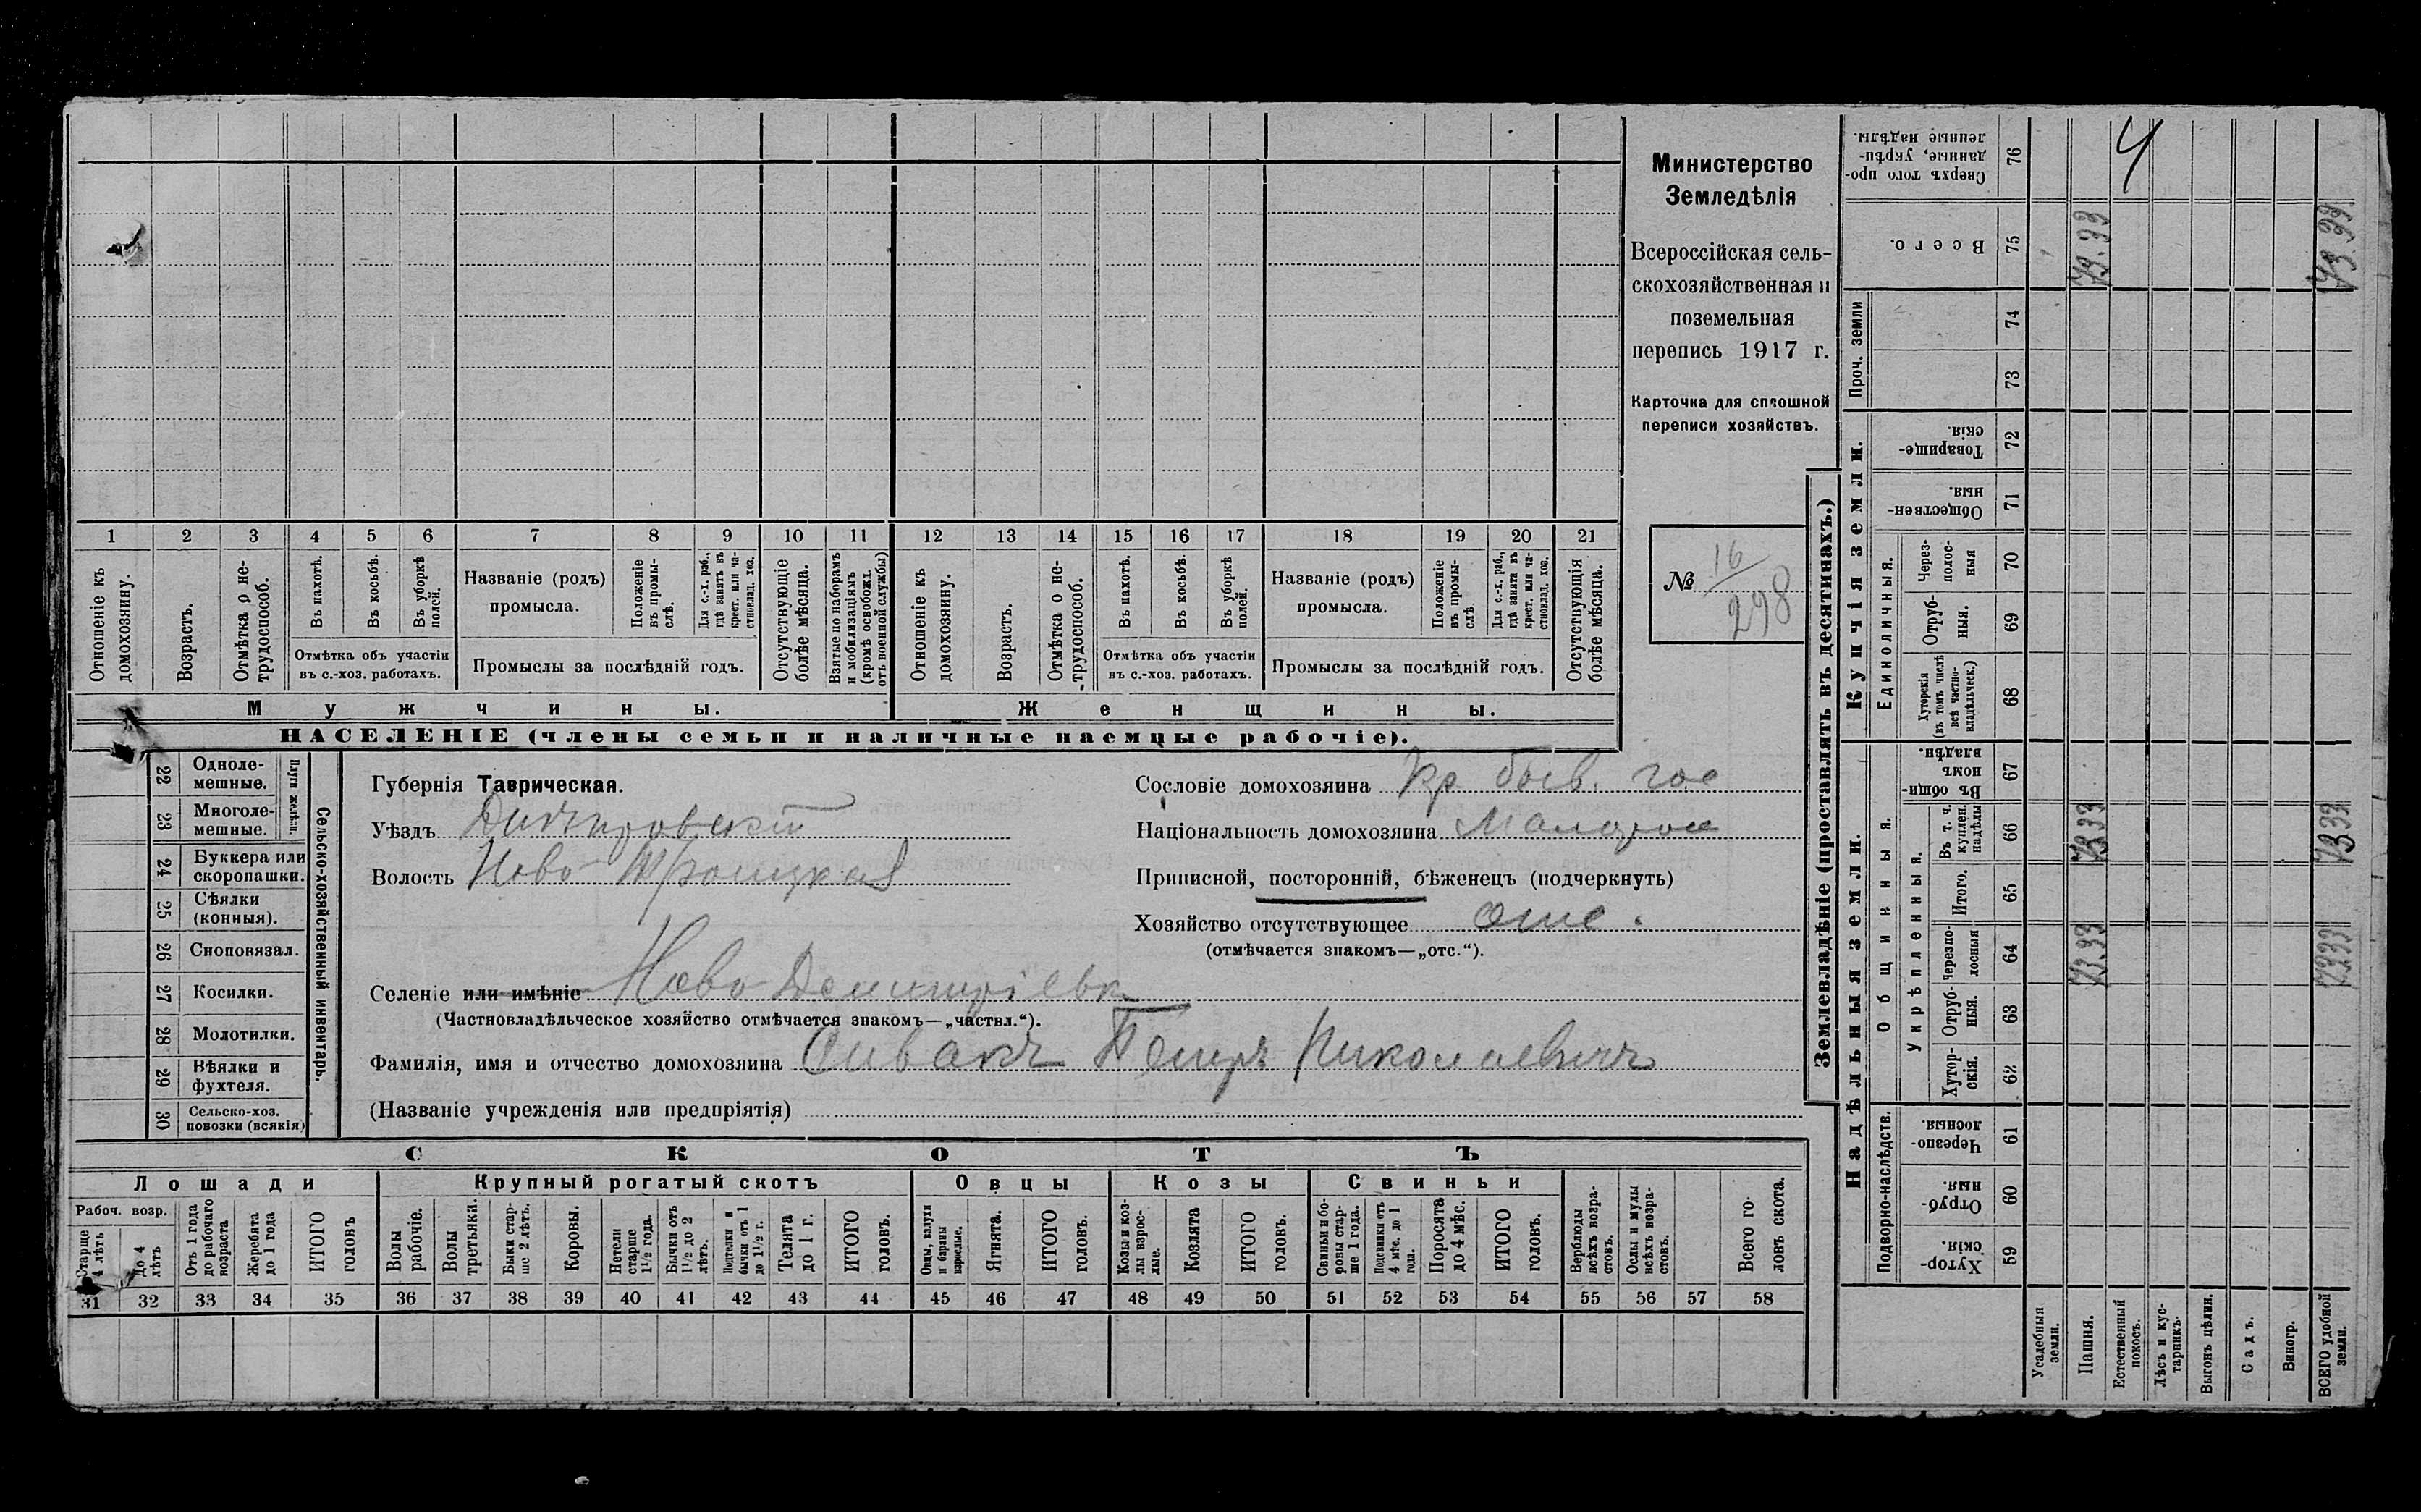 1 2 3 4 5 6 7 8 9 10 11 12 13 14 15 16 17 18 19 20 21
Отношеніе къ домохозяину.
Возрастъ.
Отмѣтка о не-трудоспособ.
Въ пахотѣ.
Въ косьбѣ.
Въ уборкѣ полей.
Отмѣтка объ участіи
въ с.-хоз. работахъ.
Названіе (родъ)
промысла.
Положеніе въ промы-слѣ.
Для с.-х. раб., гдѣ занятъ въ крест. или ча-стновлад. хоз.
Промыслы за послѣдній годъ.
Отсутствующіе болѣе мѣсяца.
Взятые по наборамъ и мобилизаціямъ (кромѣ освобожд. отъ военной службы)
Отношеніе къ домохозяину.
Возрастъ.
Отмѣтка о не-трудоспособ.
Въ пахотѣ.
Въ косьбѣ.
Въ уборкѣ полей.
Отмѣтка объ участіи
въ с.-хоз. работахъ.
Названіе (родъ)
промысла.
Положеніе въ промы-слѣ
Для с.-х. раб., гдѣ занята въ крест. или ча-стновлад. хоз.
Промыслы за послѣдній годъ.
Отсутствующія болѣе мѣсяца.
Мужчины.
Женщины.
НАСЕЛЕНІЕ (члены семьи и наличные наемные рабочіе).
Министерство
Земледѣлія
Всероссійская сель-
скохозяйственная и
поземельная
перепись 1917 г.
Карточка для сплошной
переписи хозяйствъ.
№ 16/298
22 Одноле-мешные.
23 Многоле-мешные.
Плуги желѣзн.
24 Буккера или скоропашки.
25 Сѣялки (конныя).
26 Сноповязал.
27 Косилки.
28 Молотилки.
29 Вѣялки и фухтеля.
30 Сельско-хоз. повозки (всякія)
Сельско-хозяйственный инвентарь.
Губернія Таврическая.
Уѣздъ Днѣпровскій
Волость Ново-Троицкая
Сословіе домохозяина Кр. бывш. гос
Національность домохозяина Малорос
Приписной, посторонній, бѣженецъ (подчеркнуть)
Хозяйство отсутствующее отс.
(отмѣчается знакомъ—„отс.“).
Селеніе или имѣніе Ново Демитріевк
(Частновладѣльческое хозяйство отмѣчается знакомъ—„частвл.“).
Фамилія, имя и отчество домохозяина Сивакъ Петръ Николаевичъ
(Названіе учрежденія или предпріятія)
СКОТЪ
Лошади
Крупный рогатый скотъ
Овцы
Козы
Свиньи
Рабоч. возр.
Старше 4 лѣтъ
До 4 лѣтъ
Отъ 1 года до рабочаго возраста
Жеребята до 1 года
ИТОГО головъ
Волы рабочіе.
Волы третьяки.
Быки стар-ше 2 лѣтъ.
Коровы.
Нетели старше 1½ года.
Бычки отъ 1½ до 2 лѣтъ.
Подтелки и бычки отъ 1 до 1½ г.
Телята до 1 г.
ИТОГО головъ.
Овцы, валухи и бараны взрослые.
Ягнята.
ИТОГО головъ.
Козы и коз-лы взрос-лые.
Козлята
ИТОГО головъ.
Свиньи и бо-ровы стар-ше 1 года.
Подсвинки отъ 4 мѣс. до 1 года.
Поросята до 4 мѣс.
ИТОГО головъ.
Верблюды всѣхъ возра-стовъ.
Ослы и мулы всѣхъ возра-стовъ.
Всего го-ловъ скота.
31 32 33 34 35 36 37 38 39 40 41 42 43 44 45 46 47 48 49 50 51 52 53 54 55 56 57 58
Землевладѣніе (проставлять въ десятинахъ.)
Надѣльныя земли.
Купчія земли.
Проч. земли
Подворно-наслѣдств.
Общинныя.
Укрѣпленныя.
Единоличныя.
Сверхъ того про-данные, укрѣп-ленные надѣлы. 76 4
Всего. 75 73.33 73.33
74
73
Товарище-скія. 72
Обществен-ныя. 71
Через-полос-ныя 70
Отруб-ныя. 69
Хуторскія (въ томъ числѣ всѣ частно-владѣльческ.) 68
Въ общи-номъ владѣн. 67
Въ т. ч. куплен. надѣлы 66 73 33 73 33
Итого. 65
Черезпо-лосныя 64 73.33 73 33
Отруб-ныя. 63
Хутор-скія. 62
Черезпо-лосныя. 61
Отруб-ныя. 60
Хутор-скія. 59
Усадебныя земли.
Пашня.
Естественный покосъ.
Лѣсъ и кус-тарникъ.
Выгонъ цѣлин.
Садъ.
Виногр.
ВСЕГО удобной земли.